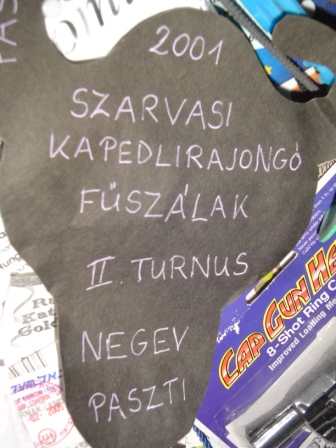 2001
SZARVASI
KAPEDLIRAJONGÓ
FŰSZÁLAK
II. TURNUS
NEGEV
PASZTI
CAP GUN
8-Shot Ring
Improved Loading